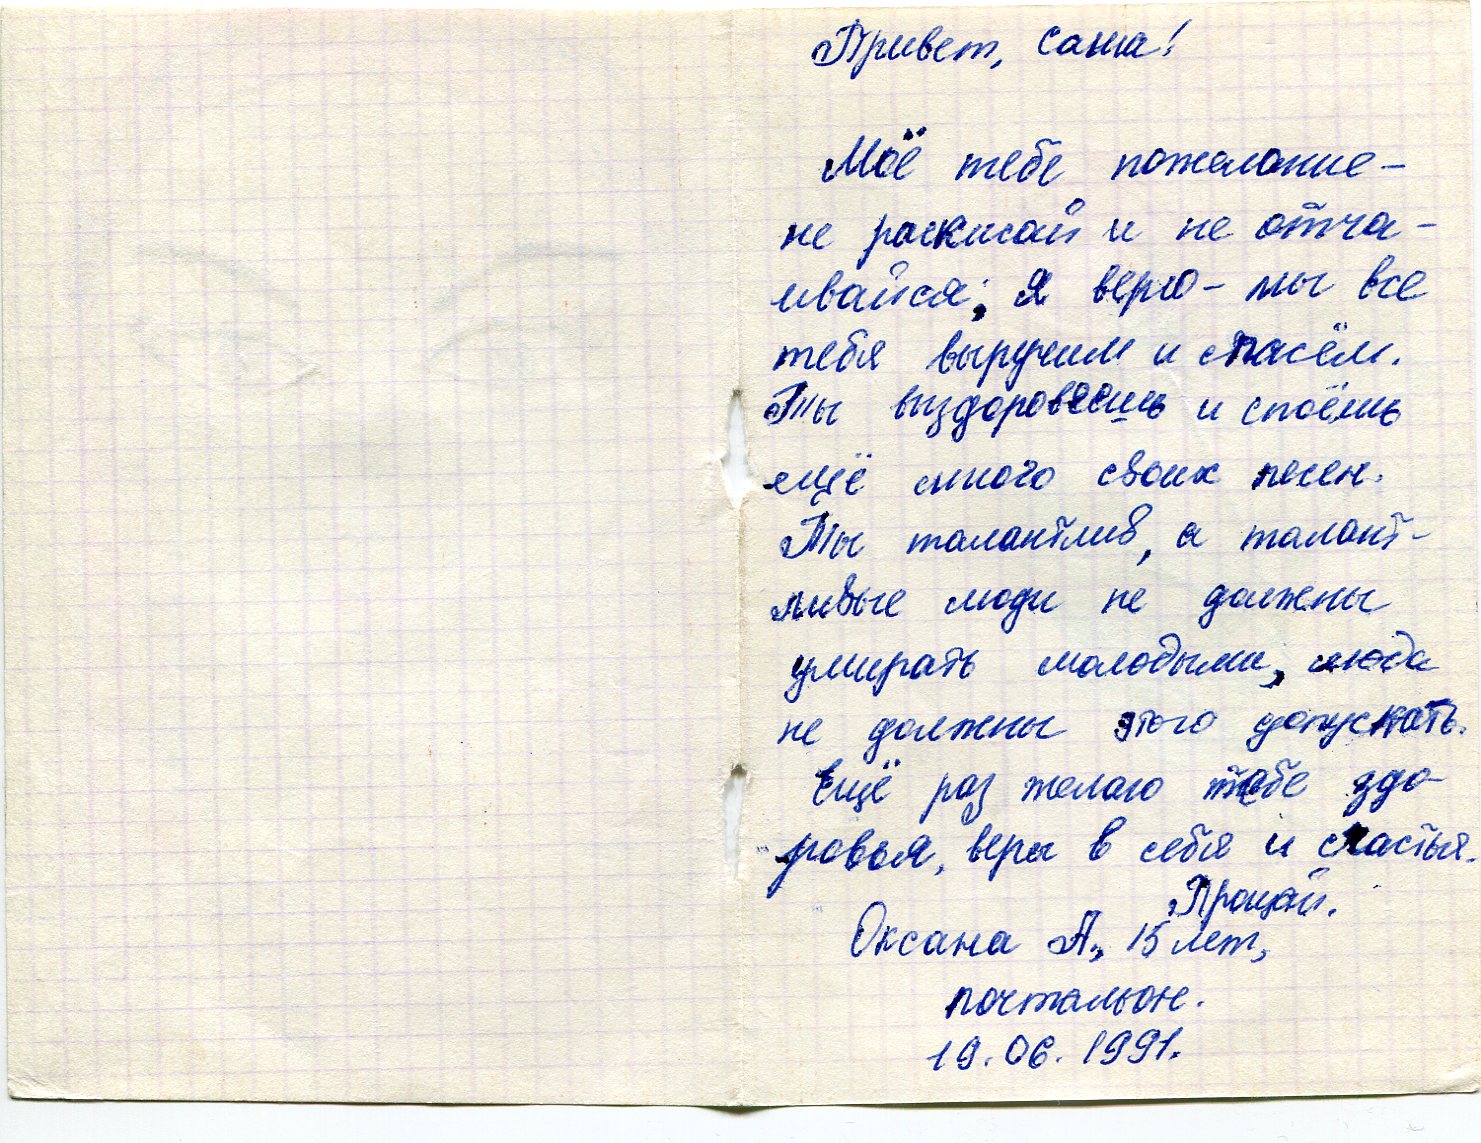 Привет, Саша!
Моё тебе пожелание –
не раскисай и не отча-
ивайся; я верю – мы все
тебя выручим и спасём.
Ты выздоровеешь и споёшь
ещё много своих песен.
Ты талантлив, а талант-
ливые люди не должены
умирать молодыми, люди
не должны этого допускать.
Ещё раз желаю тебе здо-
ровья, веры в себя и счастья.
Прощай.
Оксана А., 15 лет,
почтальон.
19.06.1991.